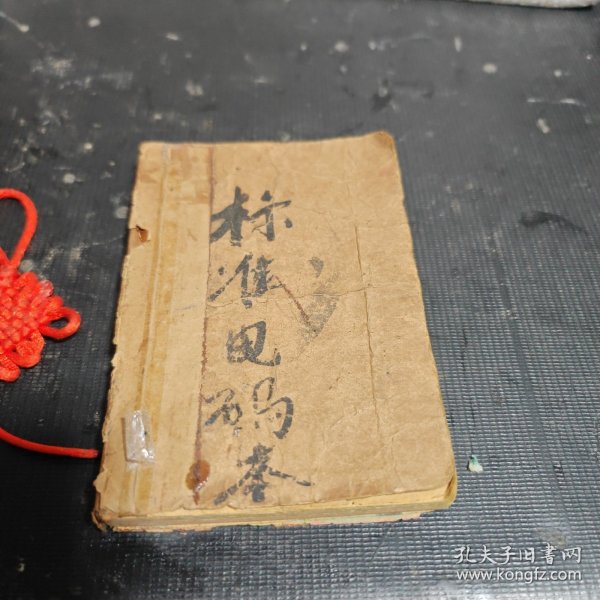 标准电码本
孔夫子旧書网
www.kongfz.com